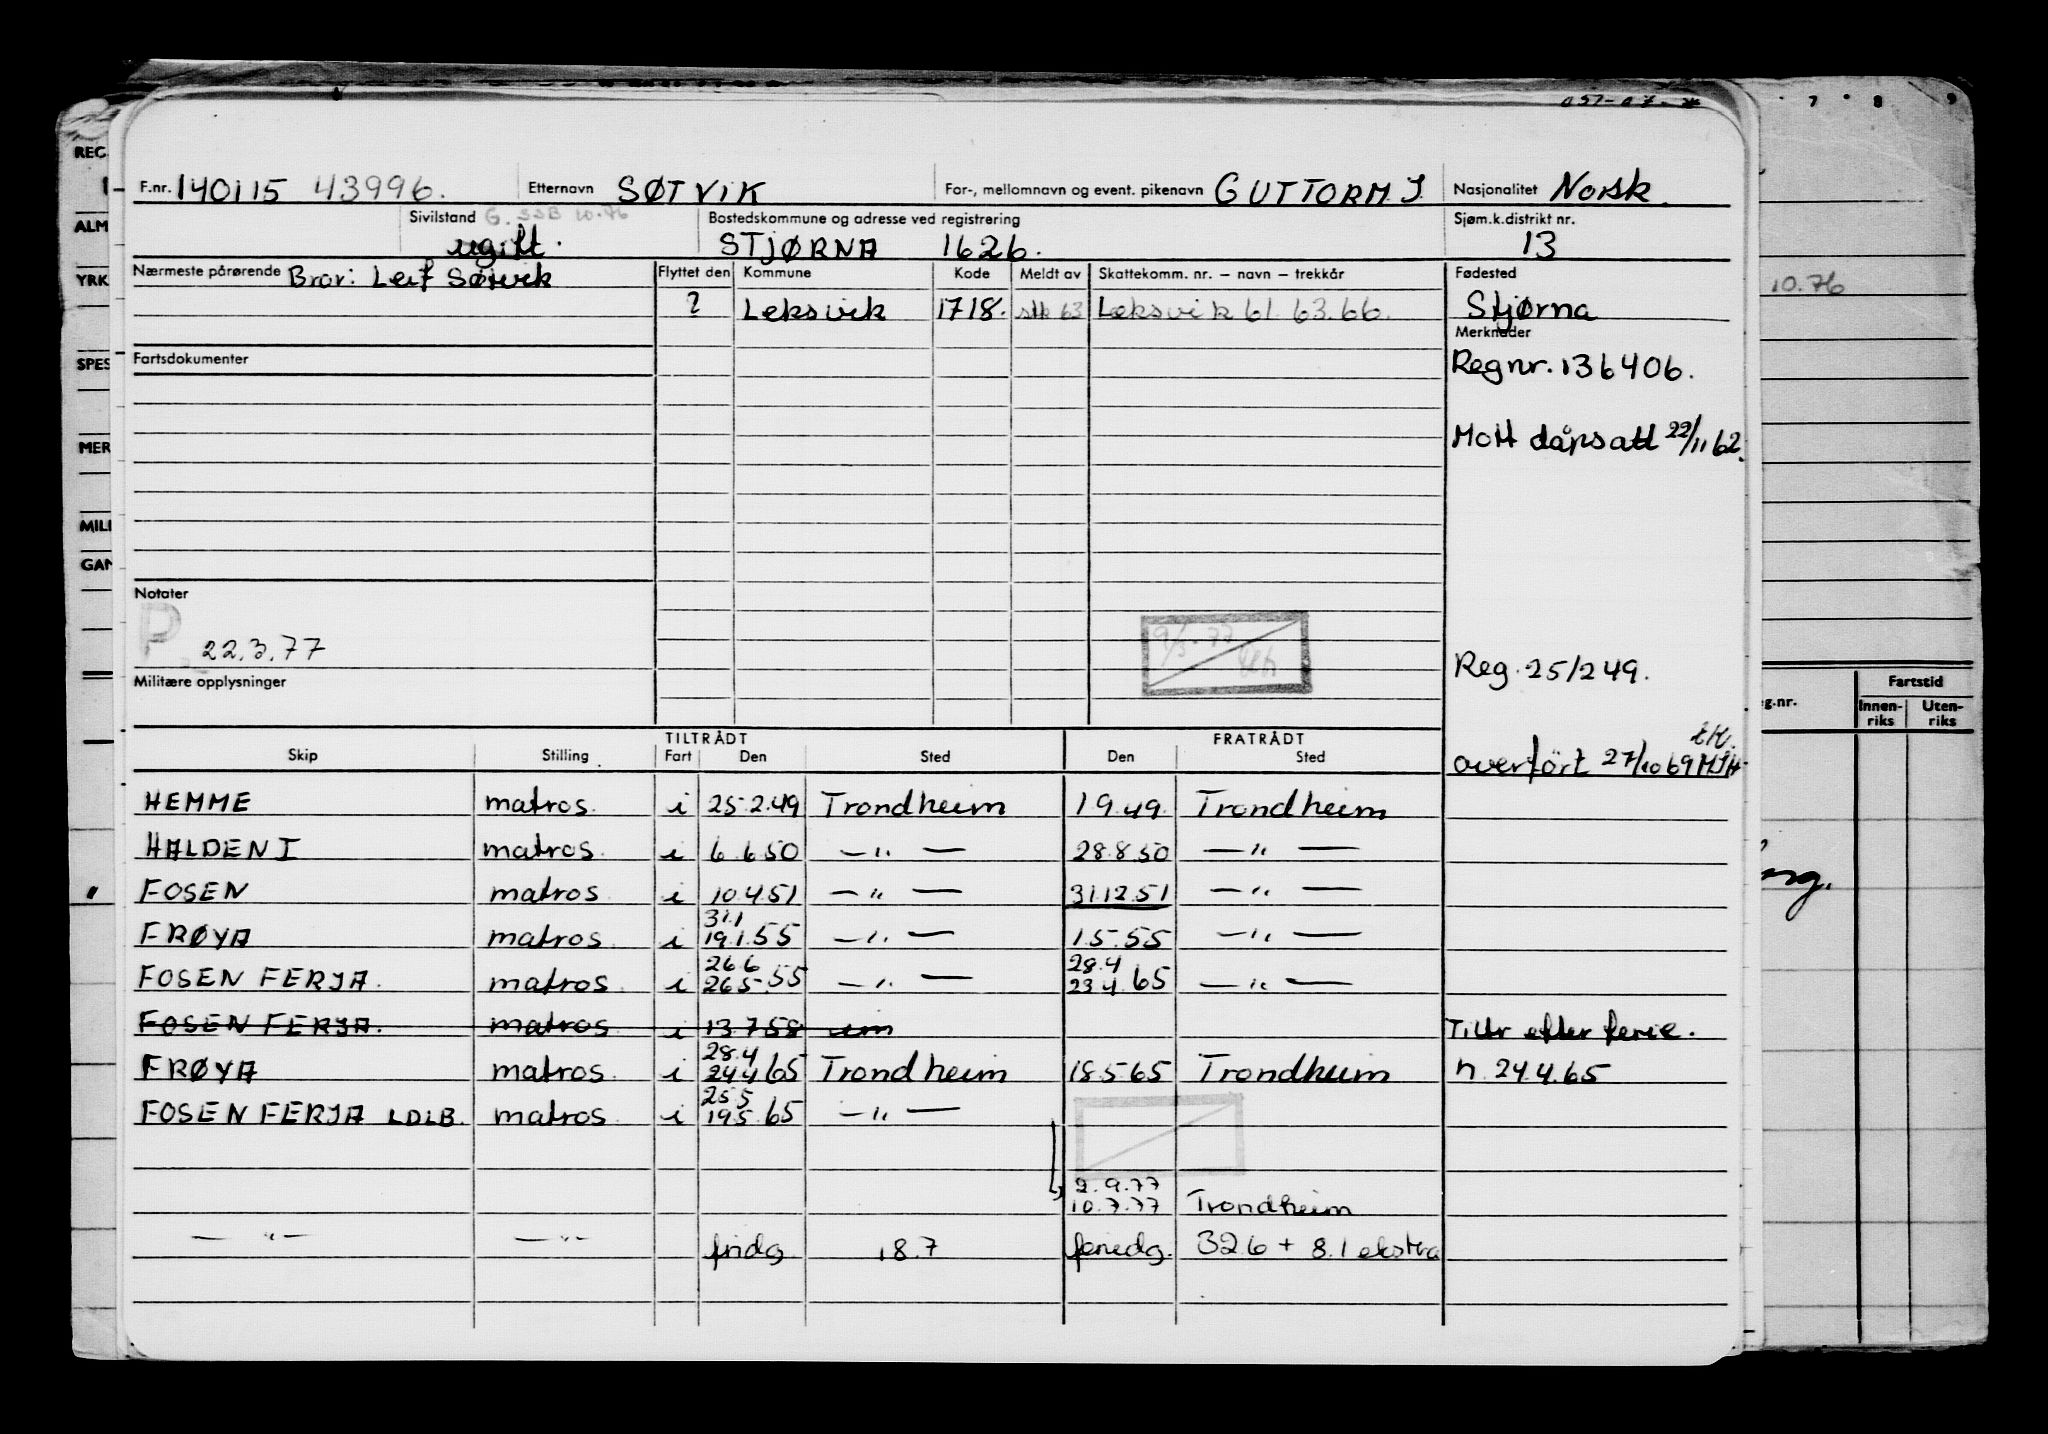 7 8 9
F.nr. 140115 43996. Etternavn SØTVIK For-, mellomnavn og event. pikenavn GUTTORM J Nasjonalitet Norsk.
Sivilstand G. SSB 10.76 Bostedskommune og adresse ved registrering Sjøm.k.distrikt nr.
ugift. STJØRNA 1626. 13
Nærmeste pårørende Bror: Leif Søtvik Flyttet den Kommune Kode Meldt av Skattekomm. nr. – navn – trekkår Fødested
? Leksvik 1718. 63 Leksvik 61. 63. 66. Stjørna
Merknader
Fartsdokumenter
Regnr. 136406.
Mott dåpsatt 22/11 62.
Notater
P 22.3.77
9/3-77
Reg. 25/249.
Militære opplysninger
TILTRÅDT FRATRÅDT
Skip Stilling Fart Den Sted Den Sted
overført 27/10 69
HEMME matros. i 25.2.49 Trondheim 1.9.49. Trondheim
HALDEN I matros. i 6.6.50 — " — 28.8.50 — " —
FOSEN matros i 10.4.51 — " — 31.12.51 — " —
31.1
FRØYA matros i 19.1.55 — " — 1.5.55 — " —
26.6 28.4
FOSEN FERJA. matros. i 26.5.55 — " — 23.4.65 — " —
FOSEN FERJA. matros i 13.7.58 Tiltr etter ferie.
28.4
FRØYA matros. i 24.4.65 Trondheim 18.5.65 Trondheim n. 24.4.65
25.5
FOSEN FERJA LDLB. matros i 19.5.65 — " —
2.9.77
10.7.77 Trondheim
— " — — " — fridg. 18.7 feriedg. 326 + 8.1 ekstra
REG.
ALM
YRK
SPES
MER
MILI
GAN
10.76
g.nr.
Fartstid
Innen-riks
Uten-riks